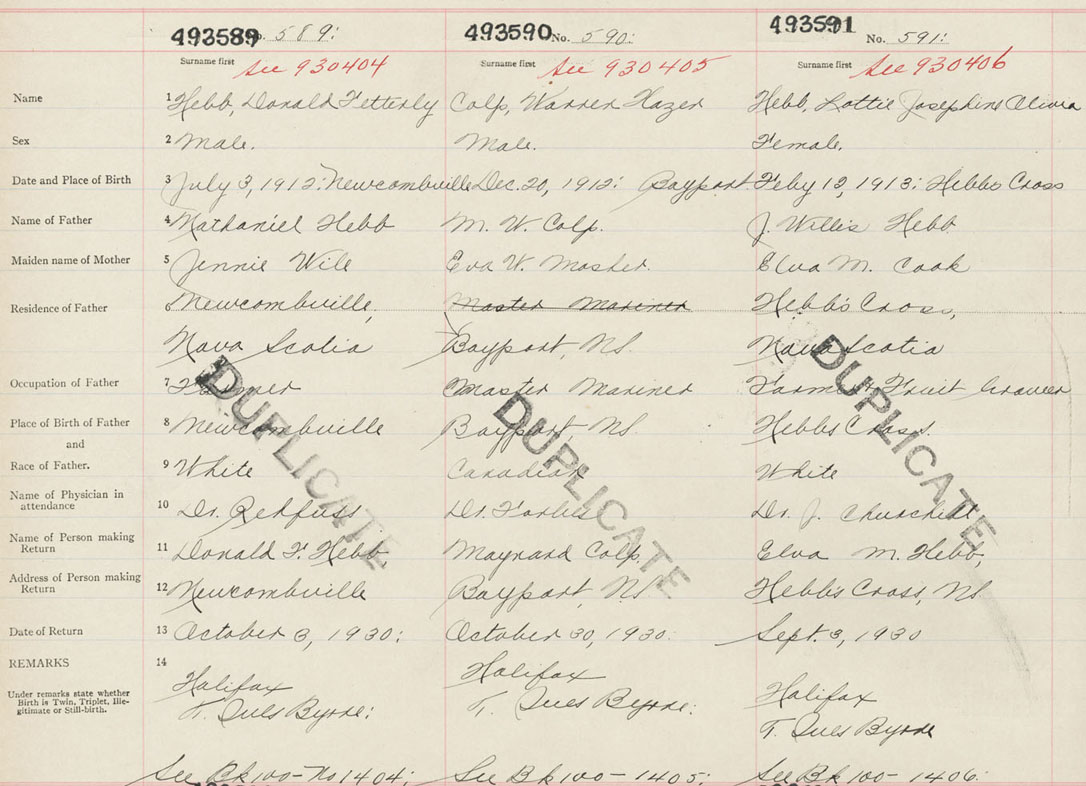 493589 No. 589: 493590 No. 590: 493591 No. 591:
Surname first See 930404 Surname first See 930405 Surname first See 930406
Name 1 Hebb, Donald Fetterly Colp, Warren Hazen Hebb, Lottie Josephine Olivia
Sex 2 Male. Male. Female.
Date and Place of Birth 3 July 3, 1912: Newcombville Dec. 20, 1912: Bayport Feby 12, 1913: Hebbs Cross
Name of Father 4 Nathaniel Hebb M. W. Colp. J. Willis Hebb
Maiden name of Mother 5 Jennie Wile Eva W. Mosher. Elva M. Cook
Residence of Father 6 Newcombville, Master Mariner Hebb's Cross,
Nova Scotia Bayport, NS. Nova Scotia
Occupation of Father 7 Farmer Master Mariner Farmer & Fruit Grower
Place of Birth of Father 8 Newcombville Bayport, NS. Hebbs Cross.
and
Race of Father. 9 White Canadian White
Name of Physician in
attendance 10 Dr. Rehfuss Dr. Forbes Dr. J. Churchill
Name of Person making
Return 11 Donald F. Hebb Maynard Colp. Elva M. Hebb,
Address of Person making
Return 12 Newcombville Bayport, NS Hebbs Cross, NS
Date of Return 13 October 3, 1930: October 30, 1930: Sept. 3, 1930
REMARKS 14
Under remarks state whether
Birth is Twin, Triplet, Ille-
gitimate or Still-birth.
Halifax Halifax Halifax
T. Ives Byrne: T. Ives Byrne: T. Ives Byrne
See Bk 100 - No 1404: See Bk 100 - 1405: See Bk 100 - 1406:
DUPLICATE DUPLICATE DUPLICATE